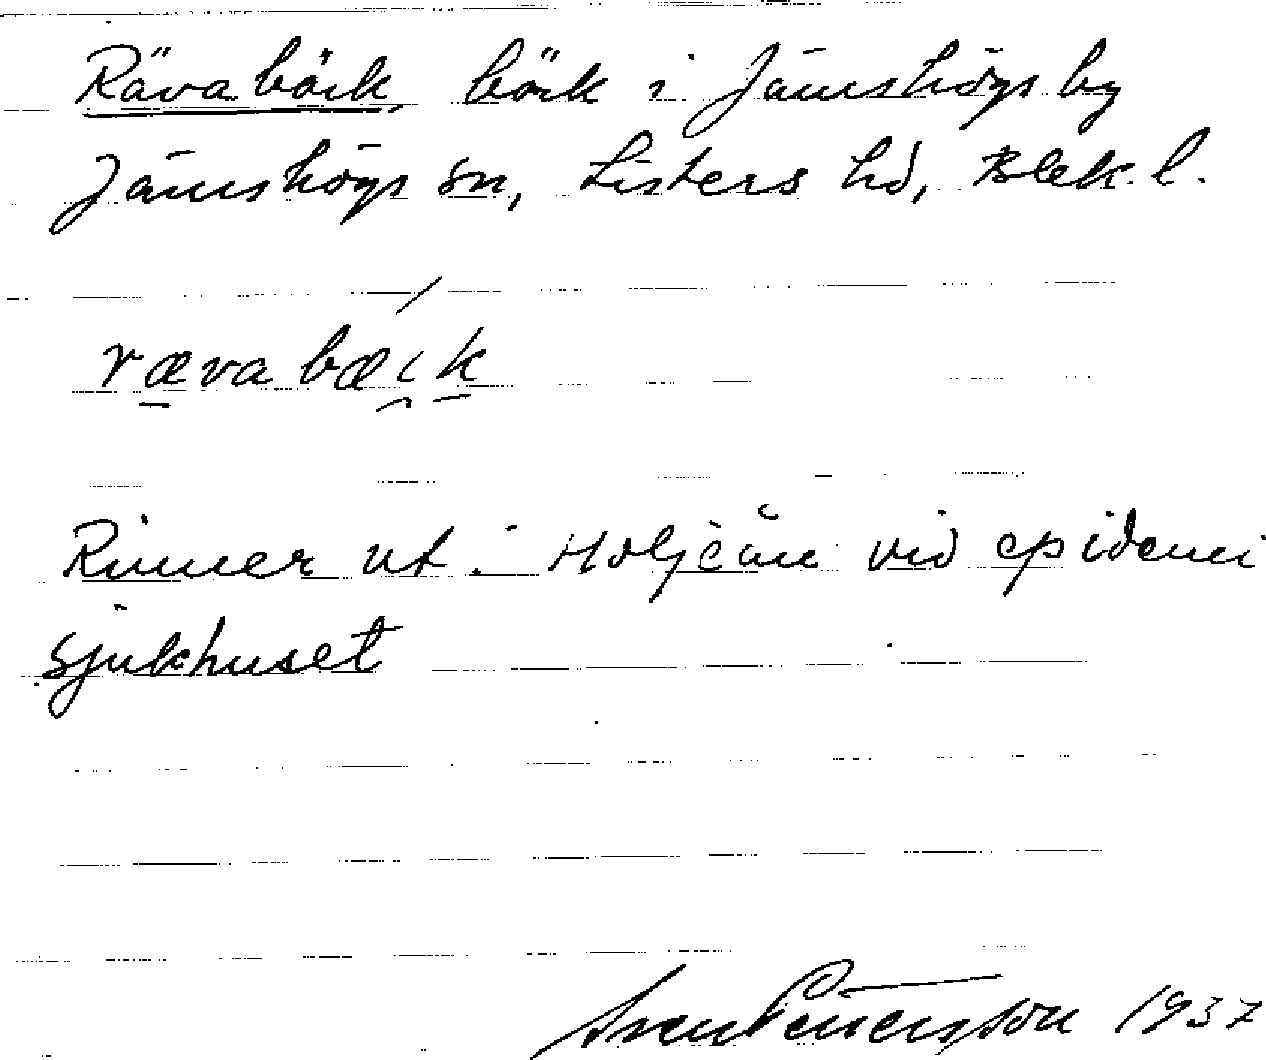 Rävabäck, bäck i Jämshögs by
Jämshögs sn, Listers hd, Blek. l.
rævabæik
Rinner ut i Holjeån vid epidemi
sjukhuset
Sven Petersson 1937